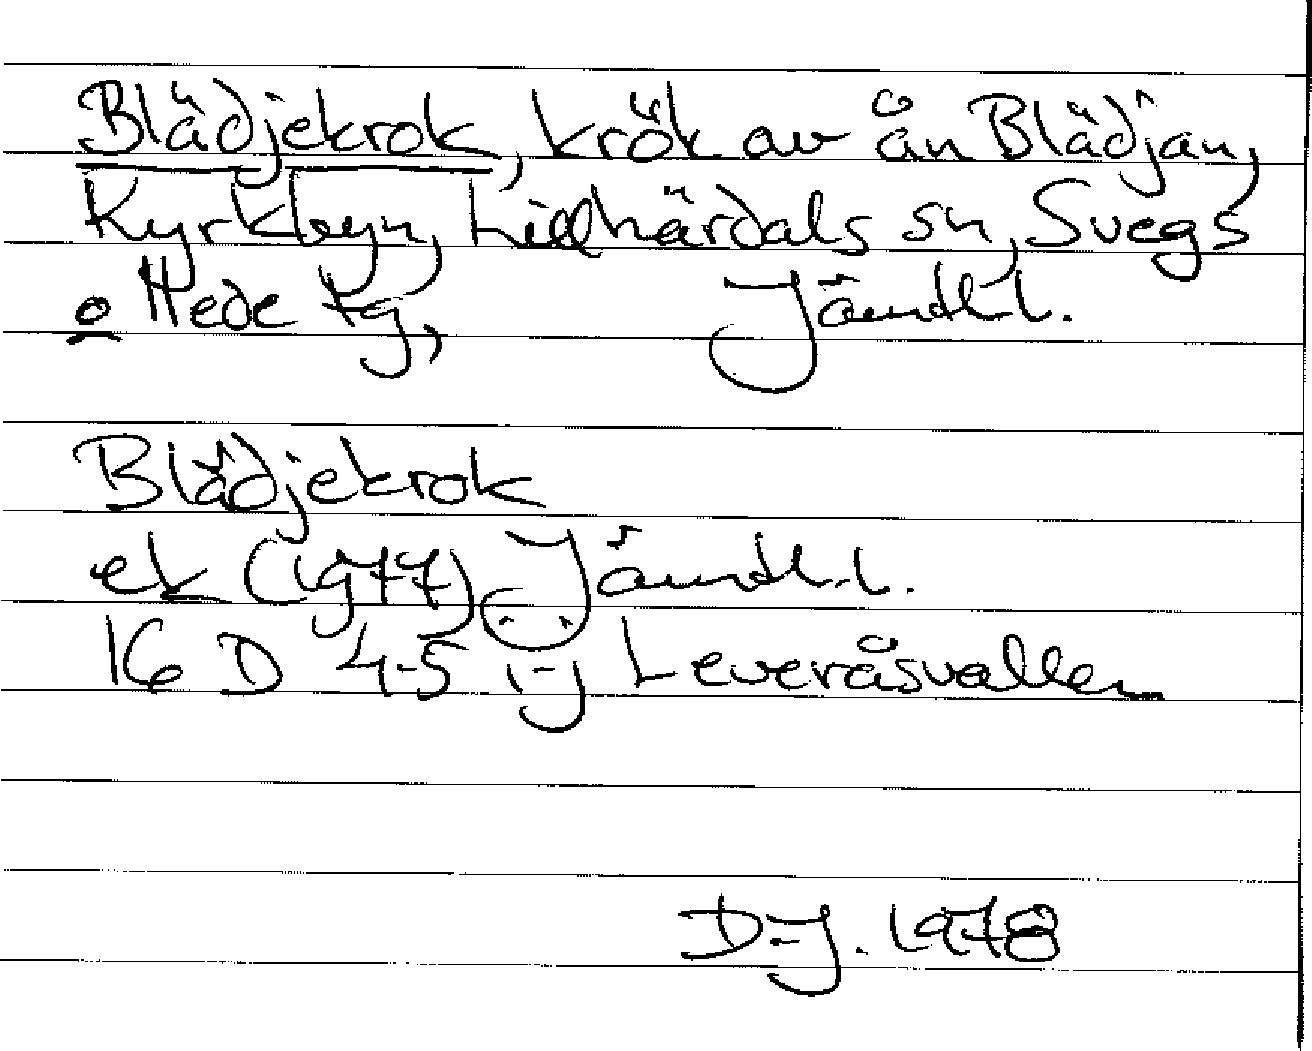 Blädjekrok, krök av ån Blädjan,
Kyrkbyn, Lillhärdals sn, Svegs
o Hede tg, Jämtl. l.
Blädjekrok
ek (1977), Jämtl. l.
16 D 4-5 i-j Leveråsvallen
D-J. 1978